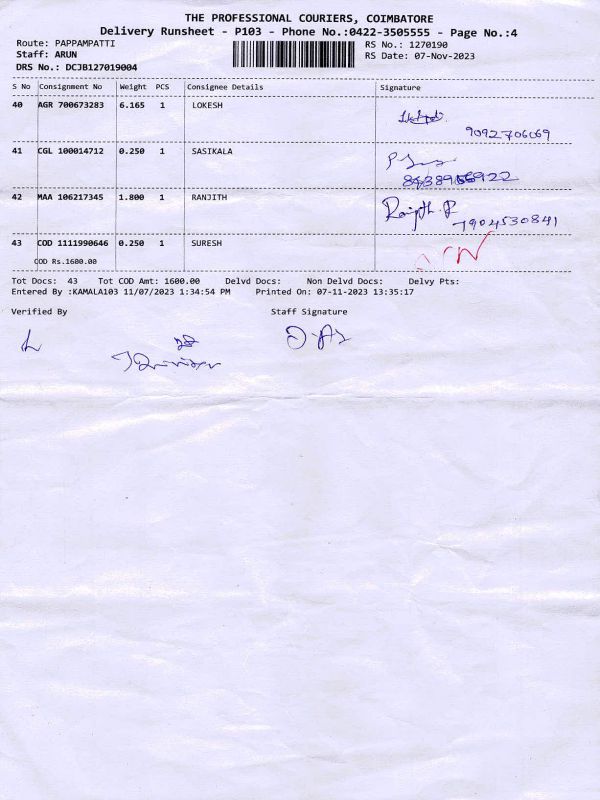 THE PROFESSIONAL COURIERS, COIMBATORE
Delivery Runsheet - P103 - Phone No.:0422-3505555 - Page No.:4
Route: PAPPAMPATTI
RS No.: 1270190
Staff: ARUN
RS Date: 07-Nov-2023
DRS No.: DCJB127019004
S No Consignment No Weight PCS Consignee Details Signature
40 AGR 700673283 6.165 1 LOKESH
9092706069
41 CGL 100014712 0.250 1 SASIKALA
42 MAA 106217345 1.800 1 RANJITH Ranjith.P
7904530841
43 COD 1111990646 0.250 1 SURESH
COD Rs.1600.00
Tot Docs: 43 Tot COD Amt: 1600.00 Delvd Docs: Non Delvd Docs: Delvy Pts:
Entered By :KAMALA103 11/07/2023 1:34:54 PM Printed On: 07-11-2023 13:35:17
Verified By Staff Signature